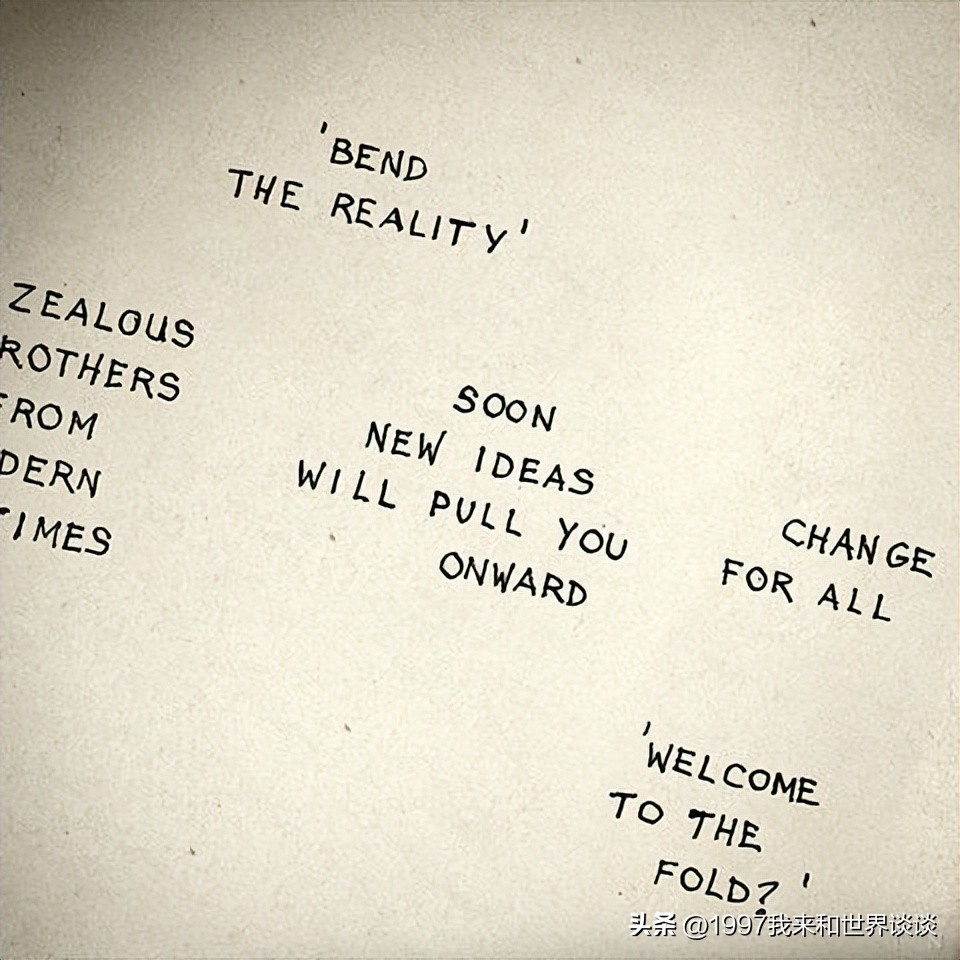 'BEND
THE REALITY'
ZEALOUS
ROTHERS
FROM
DERN
TIMES
SOON
NEW IDEAS
WILL PULL YOU
ONWARD
CHANGE
FOR ALL
'WELCOME
TO THE
FOLD?'
头条 @1997我来和世界谈谈